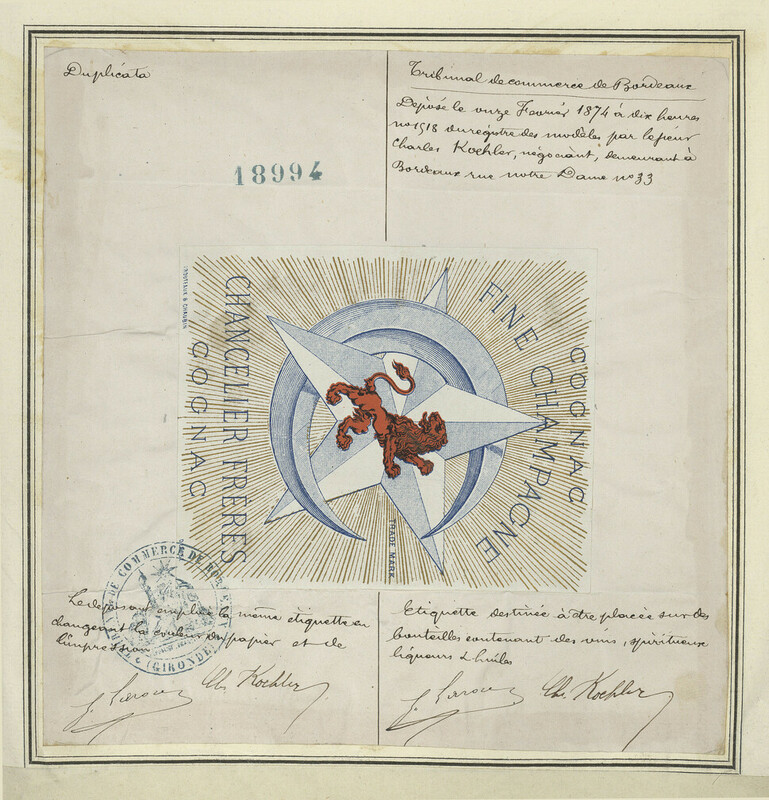 Duplicata
Tribunal de commerce de Bordeaux
Déposé le onze Fevrier 1874 à dix heures
no 1518 du registre des modèles par le sieur
Charles Koehler, négociant, demeurant à
Bordeaux rue notre Dame no 33
18994
COGNAC
FINE CHAMPAGNE
TRADE MARK
CHANCELIER FRÈRES
COGNAC
DE COMMERCE DE BORDE
(GIRONDE)
Le deposant emploie la même étiquette en
changeant la couleur du papier et de
l'impression
Etiquette destinée à être placée sur des
bouteilles contenant des vins, spiritueux
liqueurs & huiles
Chs Koehler
Chs Koehler